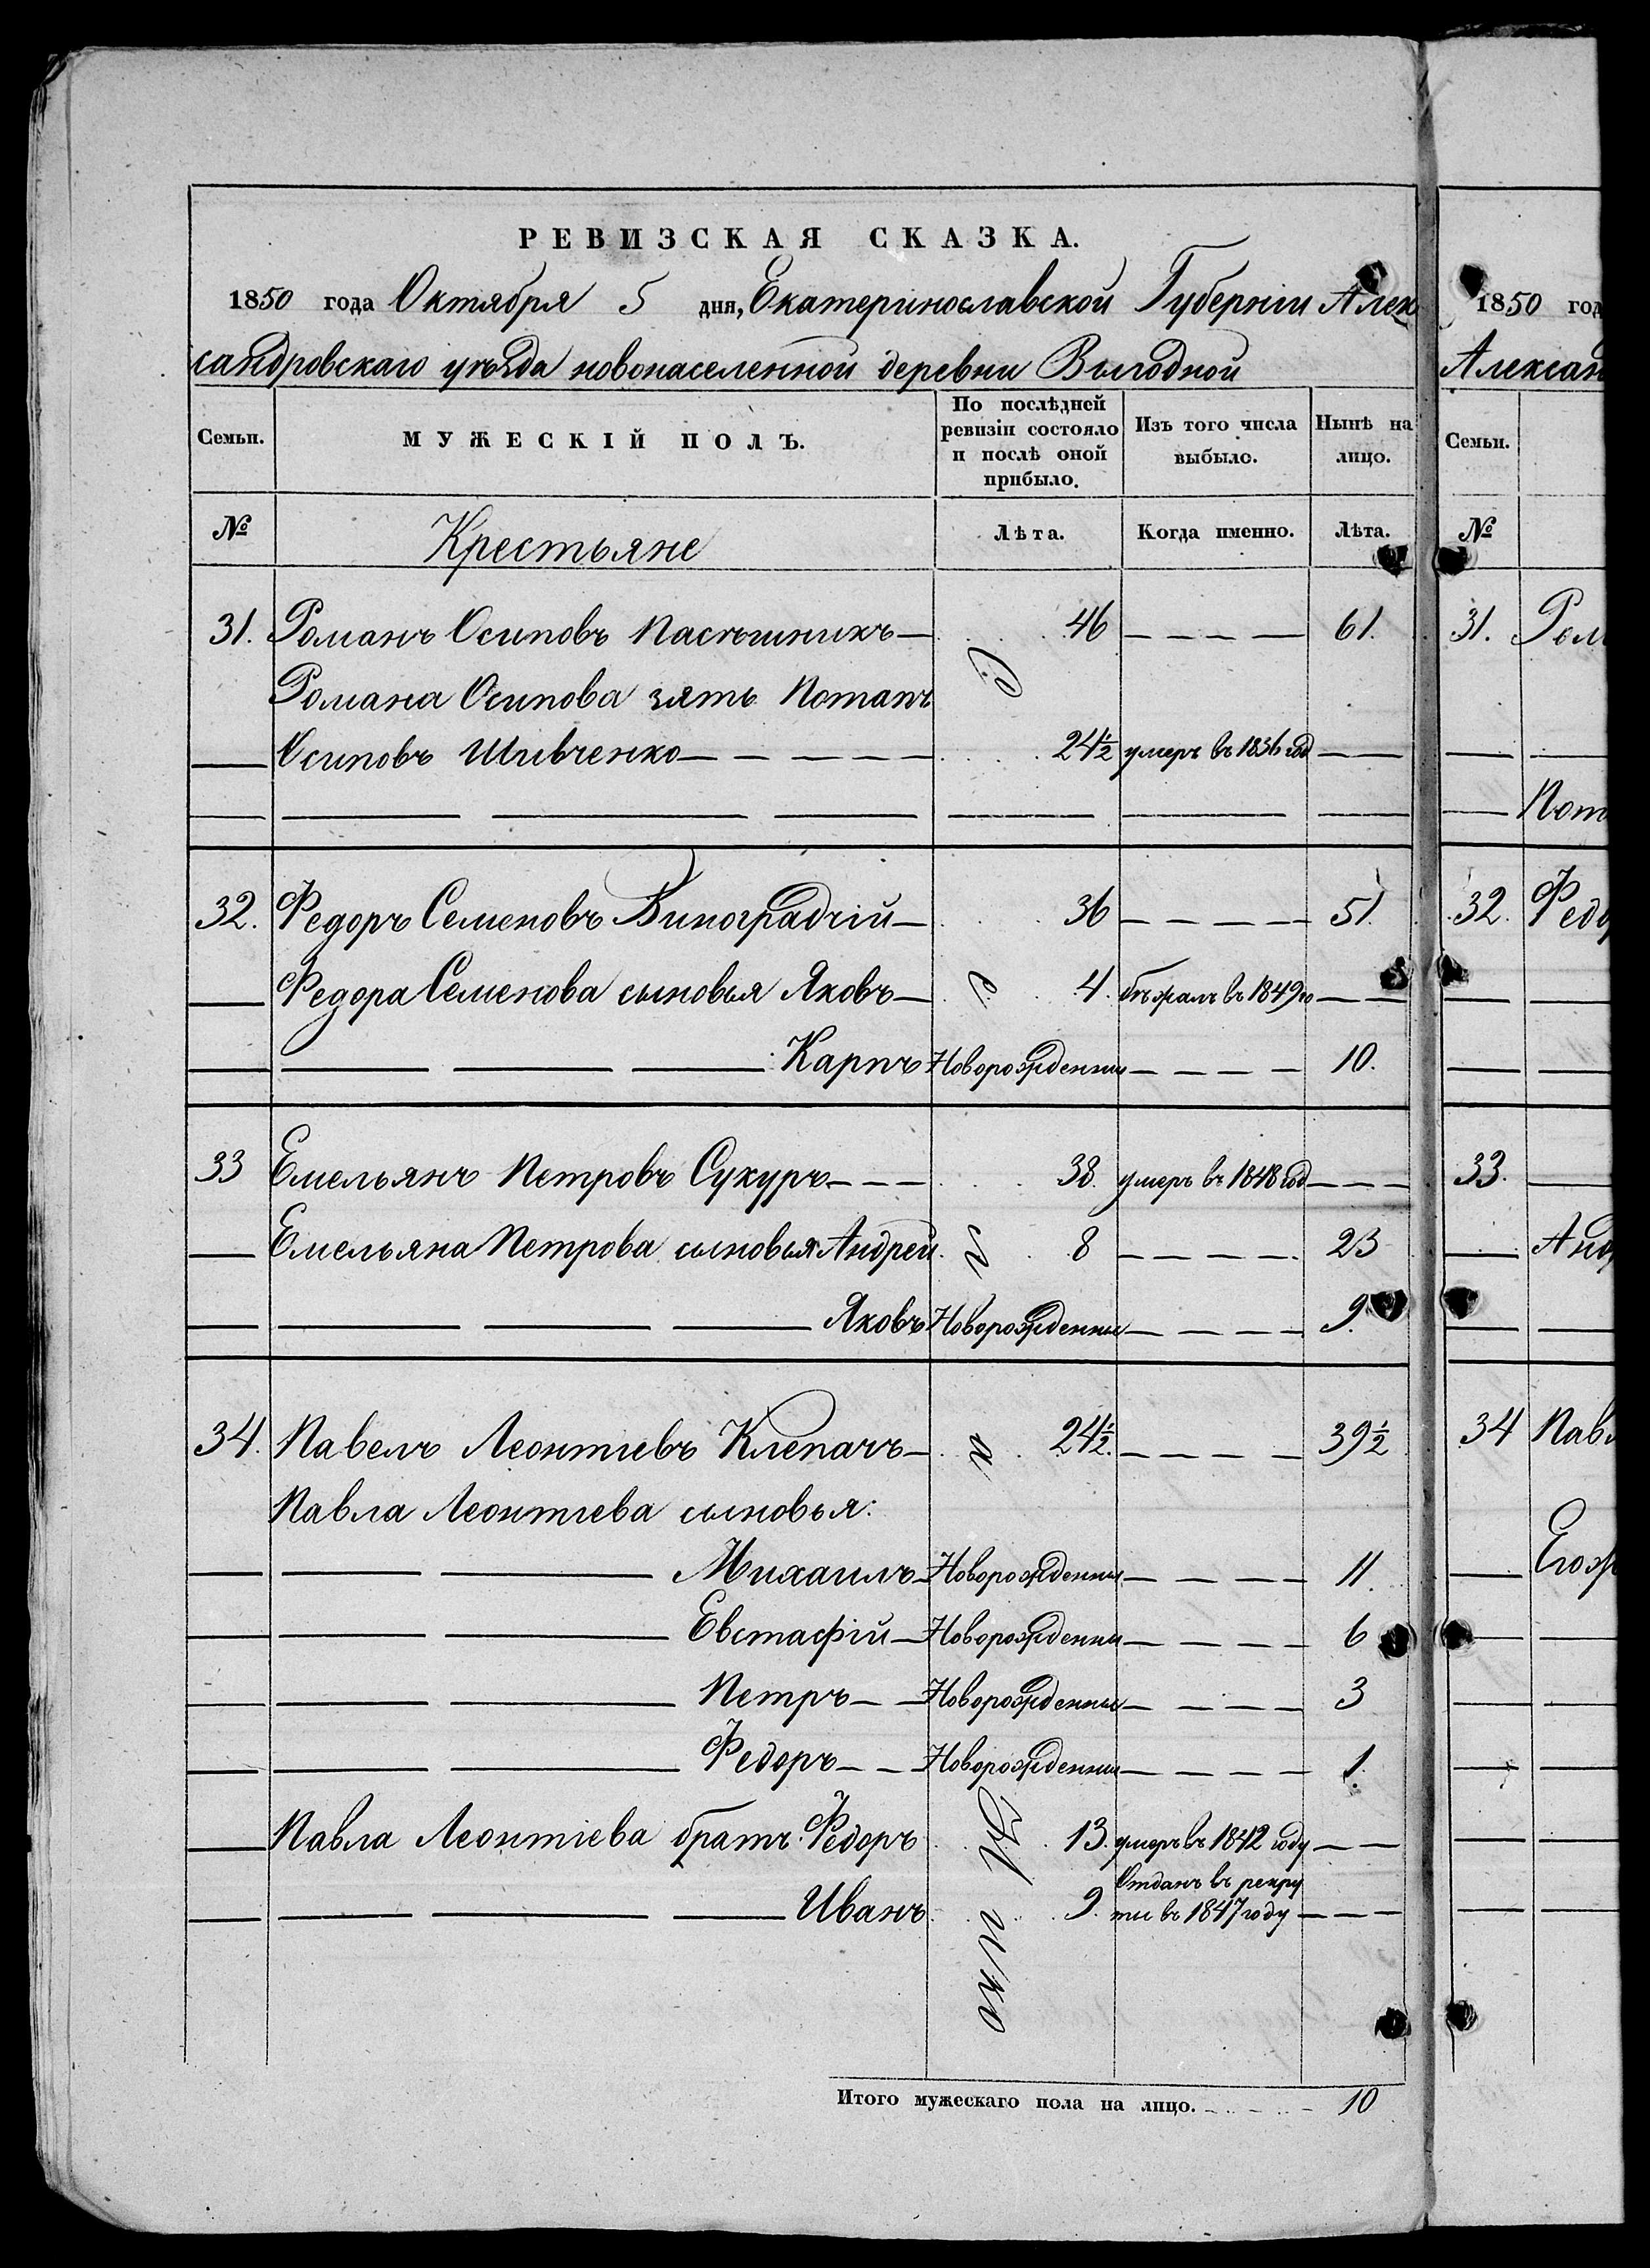 РЕВИЗСКАЯ СКАЗКА.
1850 года Октября 5 дня, Екатеринославской Губерніи Алек
сандровскаго уѣзда новонаселенной деревни Выгодной
Семьи. МУЖЕСКІЙ ПОЛЪ. По послѣдней ревизіи состояло и послѣ оной прибыло. Изъ того числа выбыло. Нынѣ на лицо.
№ Крестьяне Лѣта. Когда именно. Лѣта.
31. Романъ Осиповъ Пасѣшникъ 46 61.
Романа Осипова зять Потапъ
Осиповъ Шивченко 24½ умеръ въ 1836 год
32. Федоръ Семеновъ Виноградчій 36 51.
Федора Семенова сыновья Яковъ 4. бѣжалъ въ 1849 го
Карпъ Новорожденный 10.
33 Емельянъ Петровъ Сукуръ 38. умеръ въ 1848 год
Емельяна Петрова сыновья Андрей 8 23
Яковъ Новорожденный 9.
34. Павелъ Леонтіевъ Клепачъ 24½. 39½
Павла Леонтіева сыновья:
Михаилъ Новорожденный 11.
Евстафій Новорожденный 6
Петръ Новорожденный 3
Федоръ Новорожденный 1.
Павла Леонтіева братъ: Федоръ 13. умеръ въ 1842 году
Отданъ въ рекру
Иванъ 9. ты въ 1847 году
Итого мужескаго пола на лицо. 10
1850 год
Алексан
Семьи.
№
31. Ром
Пот
32. Федо
33.
Анд
34 Павл
Егож